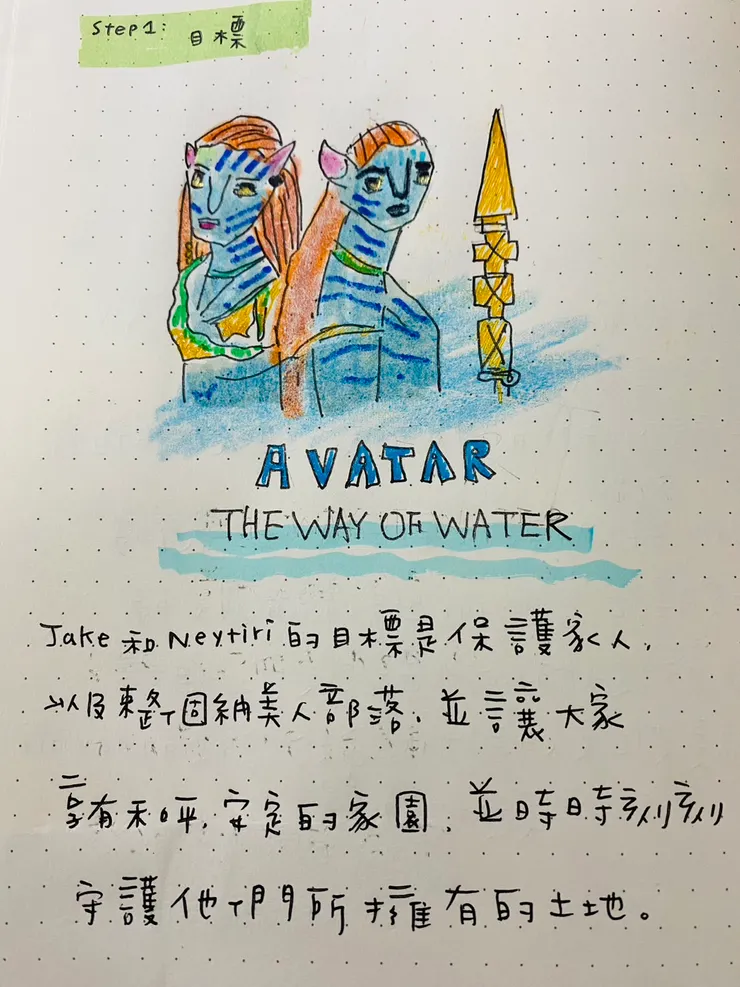 Step1: 目標
AVATAR
THE WAY OF WATER
Jake 和 Neytiri 的目標是保護家人,
以及整個納美人部落,並讓大家
享有和平,安定的家園,並時時刻刻
守護他們所擁有的土地。